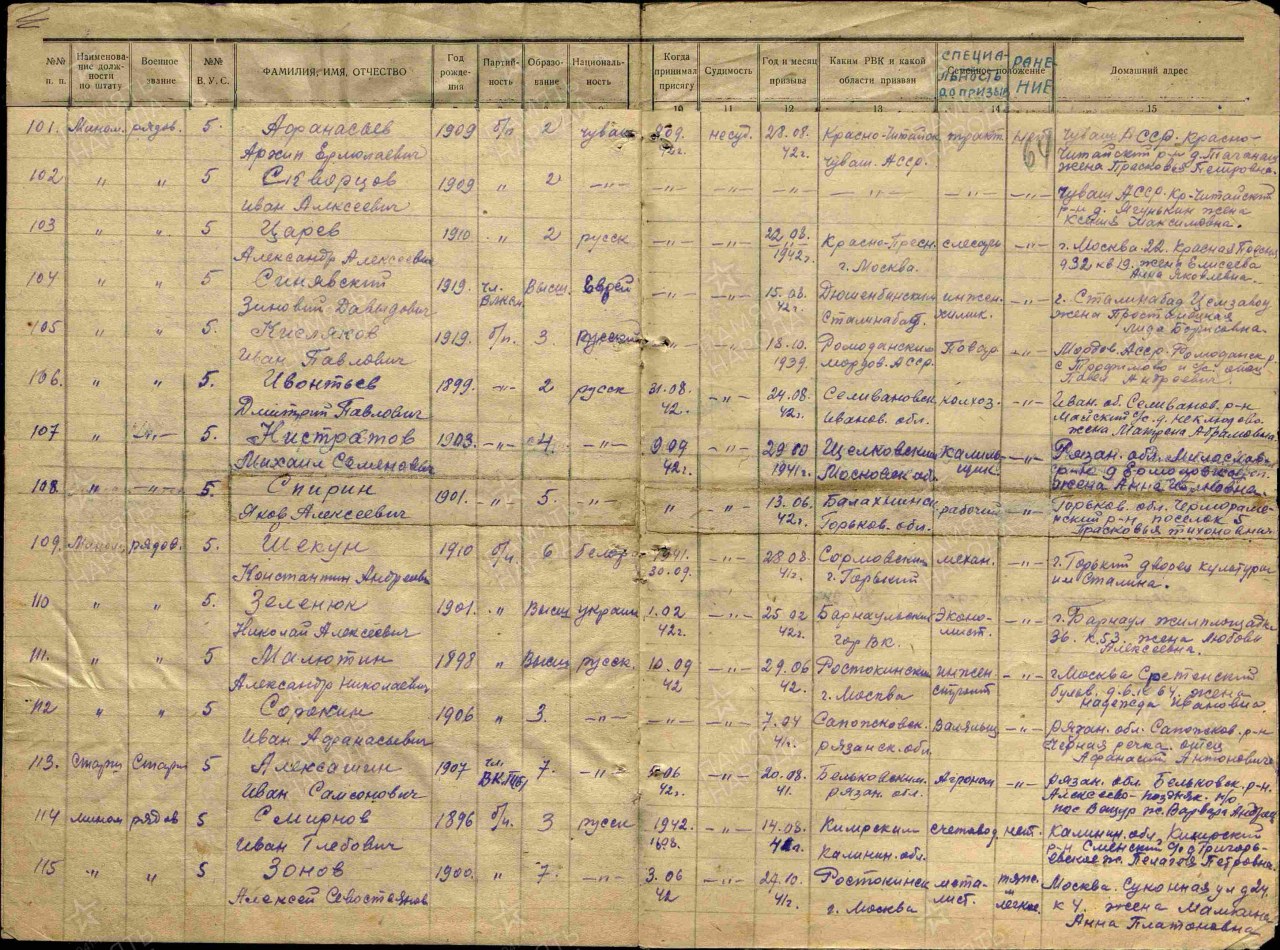 №№ п. п. Наименова- ние долж- ности по штату Военное звание №№ В. У. С. ФАМИЛИЯ, ИМЯ, ОТЧЕСТВО Год рожде- ния Партий- ность Образо- вание Националь- ность Когда принимал присягу Судимость Год и месяц призыва Каким РВК и какой области призван СПЕЦИА- ЛЬНОСТЬ ДО ПРИЗЫВ Семейное положение РАНЕ- НИЕ Домашний адрес
10 11 12 13 14 15
101. Мином. рядов. 5. Афанасьев 1909 б/п 2 чуваш 8.09. несуд. 28.08. Красно-Читайск нет Чуваш АССР. Красно-
Архип Ермолаевич 42г. 42г. Чуваш. АССР. 64 Читайский р-н д.
жена Прасковья Петровна.
102 " " 5 Скварцов 1909 " 2 —"— —"— —"— —"— —"— —"— —"— Чуваш АССР. Кр-Читайский
Иван Алексеевич р-н д. Ягунькин жена
Ксения Максимовна.
103 " " 5 Царев 1910 " 2 русск —"— —"— 22.08. Красно-Пресн. слесарь —"— г. Москва. 22. Красная
Александр Алексеевич 1942г. г. Москва. д32 кв19. жена Елисеева
Анна Яковлевна.
104 " " 5 Синявский 1919. чл. Высш. Еврей —"— —"— 15.08. Дюшенбинским инжен. —"— г. Сталинабад Цемзавод
Зиновий Давыдович ВЛКСМ. 42г. Сталинабад. химик. жена
Лида Борисовна.
105 " " 5. Кисляков 1919. б/п. 3. русский —"— —"— 18.10. Ромодански Повар —"— Мордов. АССР. Ромоданск. р
Иван Павлович 1939. мордов. АССР. с Трофимово отец
Павел Андреевич.
106. " " 5. Ивонтьев 1899. —"— 2 русск 31.08. —"— 24.08. Селивановск колхоз. —"— Иван. об. Селиванов. р-н
Дмитрий Павлович 42. 42г. Иванов. обл. Майский с/с. д. Неклюдово
жена Матрена Абрамовна
107 " —"— 5. Нистратов 1903. —"— 4. —"— 9.09 —"— 29.10 Щелковский —"— Рязан. обл. Милославс.
Михаил Семенович 42г. 1941г. Московск об. р-н д
жена Анна
108 " —"— 5. Спирин 1901. " 5. —"— " —"— 13.06 Балахнинск рабочий —"— Горьков. обл.
Яков Алексеевич 42г. Горьков. обл. р-н поселок 5
Прасковья Тихоновна
109. Мином рядов. 5. Шекун 1910 б/п. 6 белор 1941. —"— 28.08. Сормовским механ. —"— г. Горький дворец культуры
Константин Андреевич 30.09. 41г. г. Горький им Сталина.
110 " " 5. Зеленюк 1901. " Высш украин 1.02 —"— 25.02 Барнаульский Эконо- —"— г. Барнаул жилплощадка
Николай Алексеевич 42г. 42г. Гор ВК. мист. 36. к.53. жена Любовь
Алексеевна.
111. " " 5 Малютин 1898 " Высш русск. 10.09 —"— 29.06 Ростокинский инжен —"— г Москва Сретенский
Александр Николаевич 42 42. г. Москва строит бульв. д.6. к 64. жена
Надежда Ивановна.
112 " " 5 Сорокин 1906 " 3. —"— —"— —"— 7.04 Сапожковск. Валяльщ —"— рязан. обл. Сапожков. р-н
Иван Афанасьевич 41г. рязанск. обл. Черная речка. отец
Афанасий Антонович
113. Старш Старш 5 Алексашин 1907 чл. 7. —"— 5.06 —"— 20.08. Бельковским. Агроном —"— рязан. обл Бельковск. р-н.
Иван Самсонович ВКП(б) 42г. 41. рязан. обл. Алексеево- п/о
ж. Варвара
114 мином рядов 5 Смирнов 1896 б/п. 3 русск 1942. —"— 14.08. Кимрским счетовод нет. Калинин. обл. Кимрский
Иван Глебович г. Калинин. обл. р-н с/с д Григорь-
евское ж. Пелагея Петровна.
115 —"— " 5 Зонов 1900. " 7. —"— 3.06 —"— 29.10. Ростокинск мета- тяж. Москва. Суконная ул д 24.
Алексей Севостьянов 42 41г. г. Москва лист. и легкое. к 4. жена Мамкина
Анна Платоновна